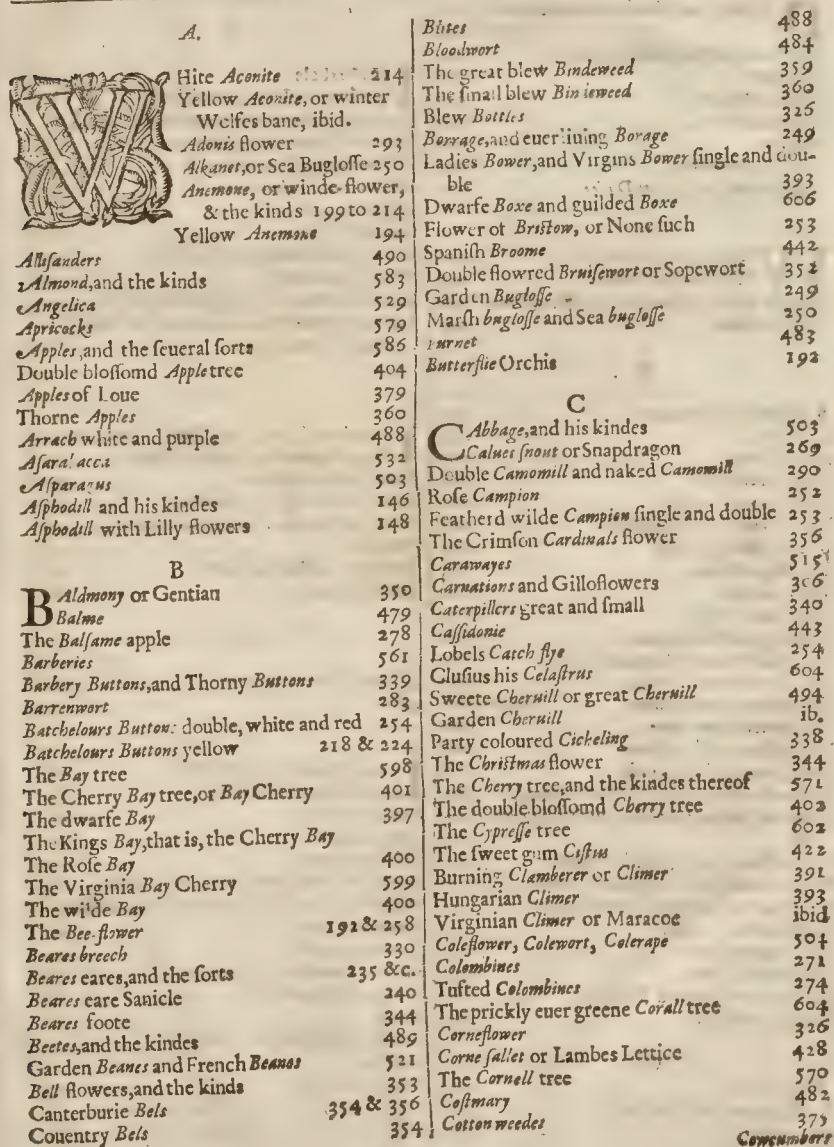 A.
WHite Aconite 214
Yellow Aconite, or winter
Wolfes bane, ibid.
Adonis flower 293
Alkanet, or Sea Buglosse 250
Anemone, or winde-flower,
& the kinds 199 to 214
Yellow Anemone 194
Allisanders 490
Almond, and the kinds 583
Angelica 529
Apricocks 579
Apples, and the seueral sorts 586
Double blossomd Apple tree 404
Apples of Loue 379
Thorne Apples 360
Arrach white and purple 488
Asarabacca 532
Asparagus 503
Asphodill and his kindes 146
Asphodill with Lilly flowers 148
B
BAldmony or Gentian 350
Balme 479
The Balsame apple 278
Barberies 561
Barbery Buttons, and Thorny Buttons 339
Barrenwort 283
Batchelours Buttons double, white and red 254
Batchelours Buttons yellow 218 & 224
The Bay tree 598
The Cherry Bay tree, or Bay Cherry 401
The dwarfe Bay 397
The Kings Bay, that is, the Cherry Bay
The Rose Bay 400
The Virginia Bay Cherry 599
The wilde Bay 400
The Bee-flower 192 & 258
Beares breech 330
Beares eares, and the sorts 235 &c.
Beares eare Sanicle 240
Beares foote 344
Beetes, and the kindes 489
Garden Beanes and French Beanes 521
Bell flowers, and the kinds 353
Canterburie Bels 354 & 356
Couentry Bels 354
Blites 488
Bloodwort 484
The great blew Bindeweed 359
The small blew Bindeweed 360
Blew Bottles 326
Borrage, and euerliuing Borage 249
Ladies Bower, and Virgins Bower single and dou-
ble 393
Dwarfe Boxe and guilded Boxe 606
Flower of Bristow, or None such 253
Spanish Broome 442
Double flowred Bruisewort or Sopewort 352
Garden Buglosse 249
Marsh buglosse and Sea buglosse 250
Burnet 483
Butterflie Orchis 192
C
CAbbage, and his kindes 503
Calues snout or Snapdragon 269
Double Camomill and naked Camomill 290
Rose Campion 252
Featherd wilde Campion single and double 253
The Crimson Cardinals flower 356
Carawayes 515
Carnations and Gilloflowers 306
Caterpillers great and small 340
Cassidonie 443
Lobels Catch flye 254
Clusius his Celastrus 604
Sweete Cheruill or great Cheruill 494
Garden Cheruill ib.
Party coloured Cickeling 338
The Christmas flower 344
The Cherry tree, and the kindes thereof 571
The double blossomd Cherry tree 402
The Cypresse tree 602
The sweet gum Cistus 422
Burning Clamberer or Climer 391
Hungarian Climer 393
Virginian Climer or Maracoc ibid
Coleflower, Colewort, Colerape 504
Colombines 271
Tufted Colombines 274
The prickly euer greene Corall tree 604
Corneflower 326
Corne sallet or Lambes Lettice 428
The Cornell tree 570
Costmary 482
Cotton weedes 375
Cowcumbers